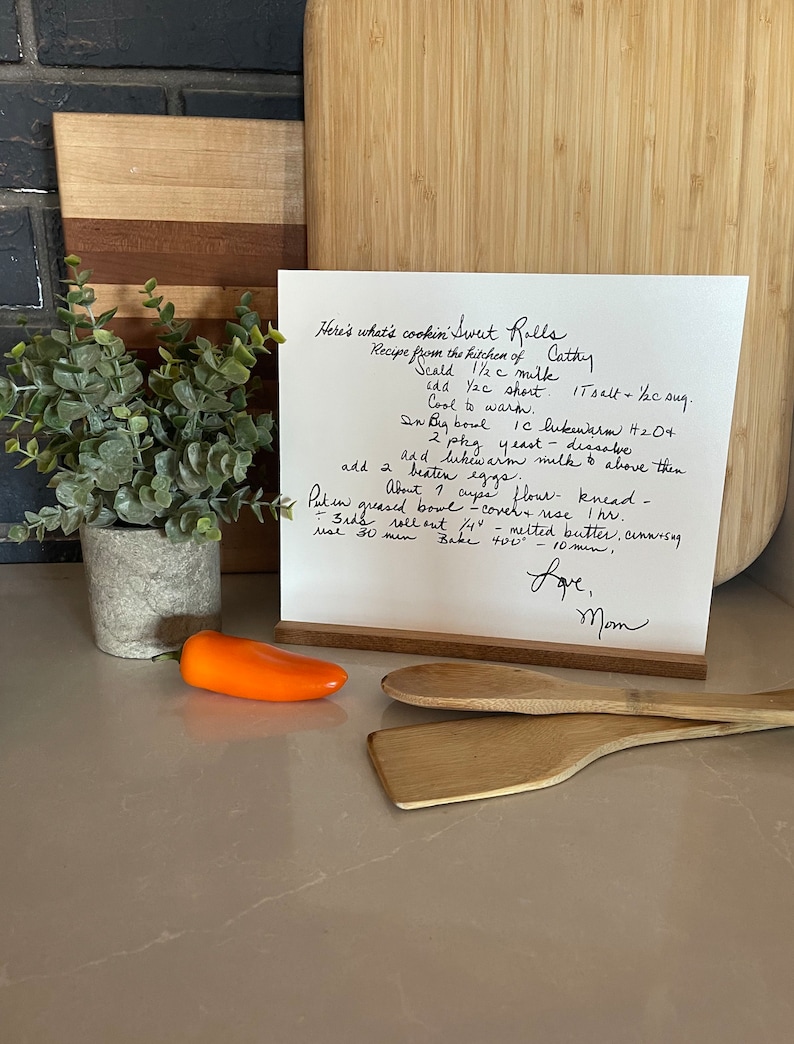 Here's what's cookin' Sweet Rolls
Recipe from the kitchen of Cathy
Scald 1 1/2 c milk
add 1/2c short. 1T salt + 1/2c sug.
Cool to warm.
In Big bowl 1 c lukewarm H2O +
2 pkg yeast - dissolve
add lukewarm milk to above then
add 2 beaten eggs.
About 7 cups flour - knead -
Put in greased bowl - cover + rise 1 hr.
÷ 3rds roll out 1/4" - melted butter, cinn + sug
rise 30 min Bake 400° - 10 min.
Love,
Mom